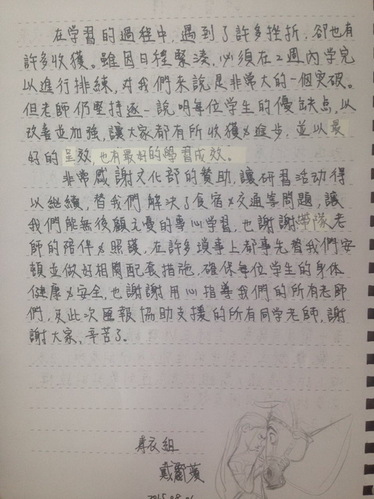 在學習的過程中,遇到了許多挫折,卻也有
許多收獲。雖因日程緊湊,必須在2週內學完
以進行排練,對我們來說是非常大的一個突破。
但老師仍堅持逐一說明每位學生的優缺点,以
改善並加強,讓大家都有所收獲及進步,並以最
好的呈效,也有最好的學習成效。
非常感謝文化部的贊助,讓研習活動得
以繼續,替我們解決了食宿及交通等問題,讓
我們能無後顧之憂的專心學習,也謝謝老
師的陪伴及照護,在許多瑣事上都事先替我們安
頓並做好相關配套措施,確保每位學生的身体
健康及安全,也謝謝用心指導我們的所有老師
們,及此次匯報協助支援的所有同學老師,謝
謝大家,辛苦了。
組
戴